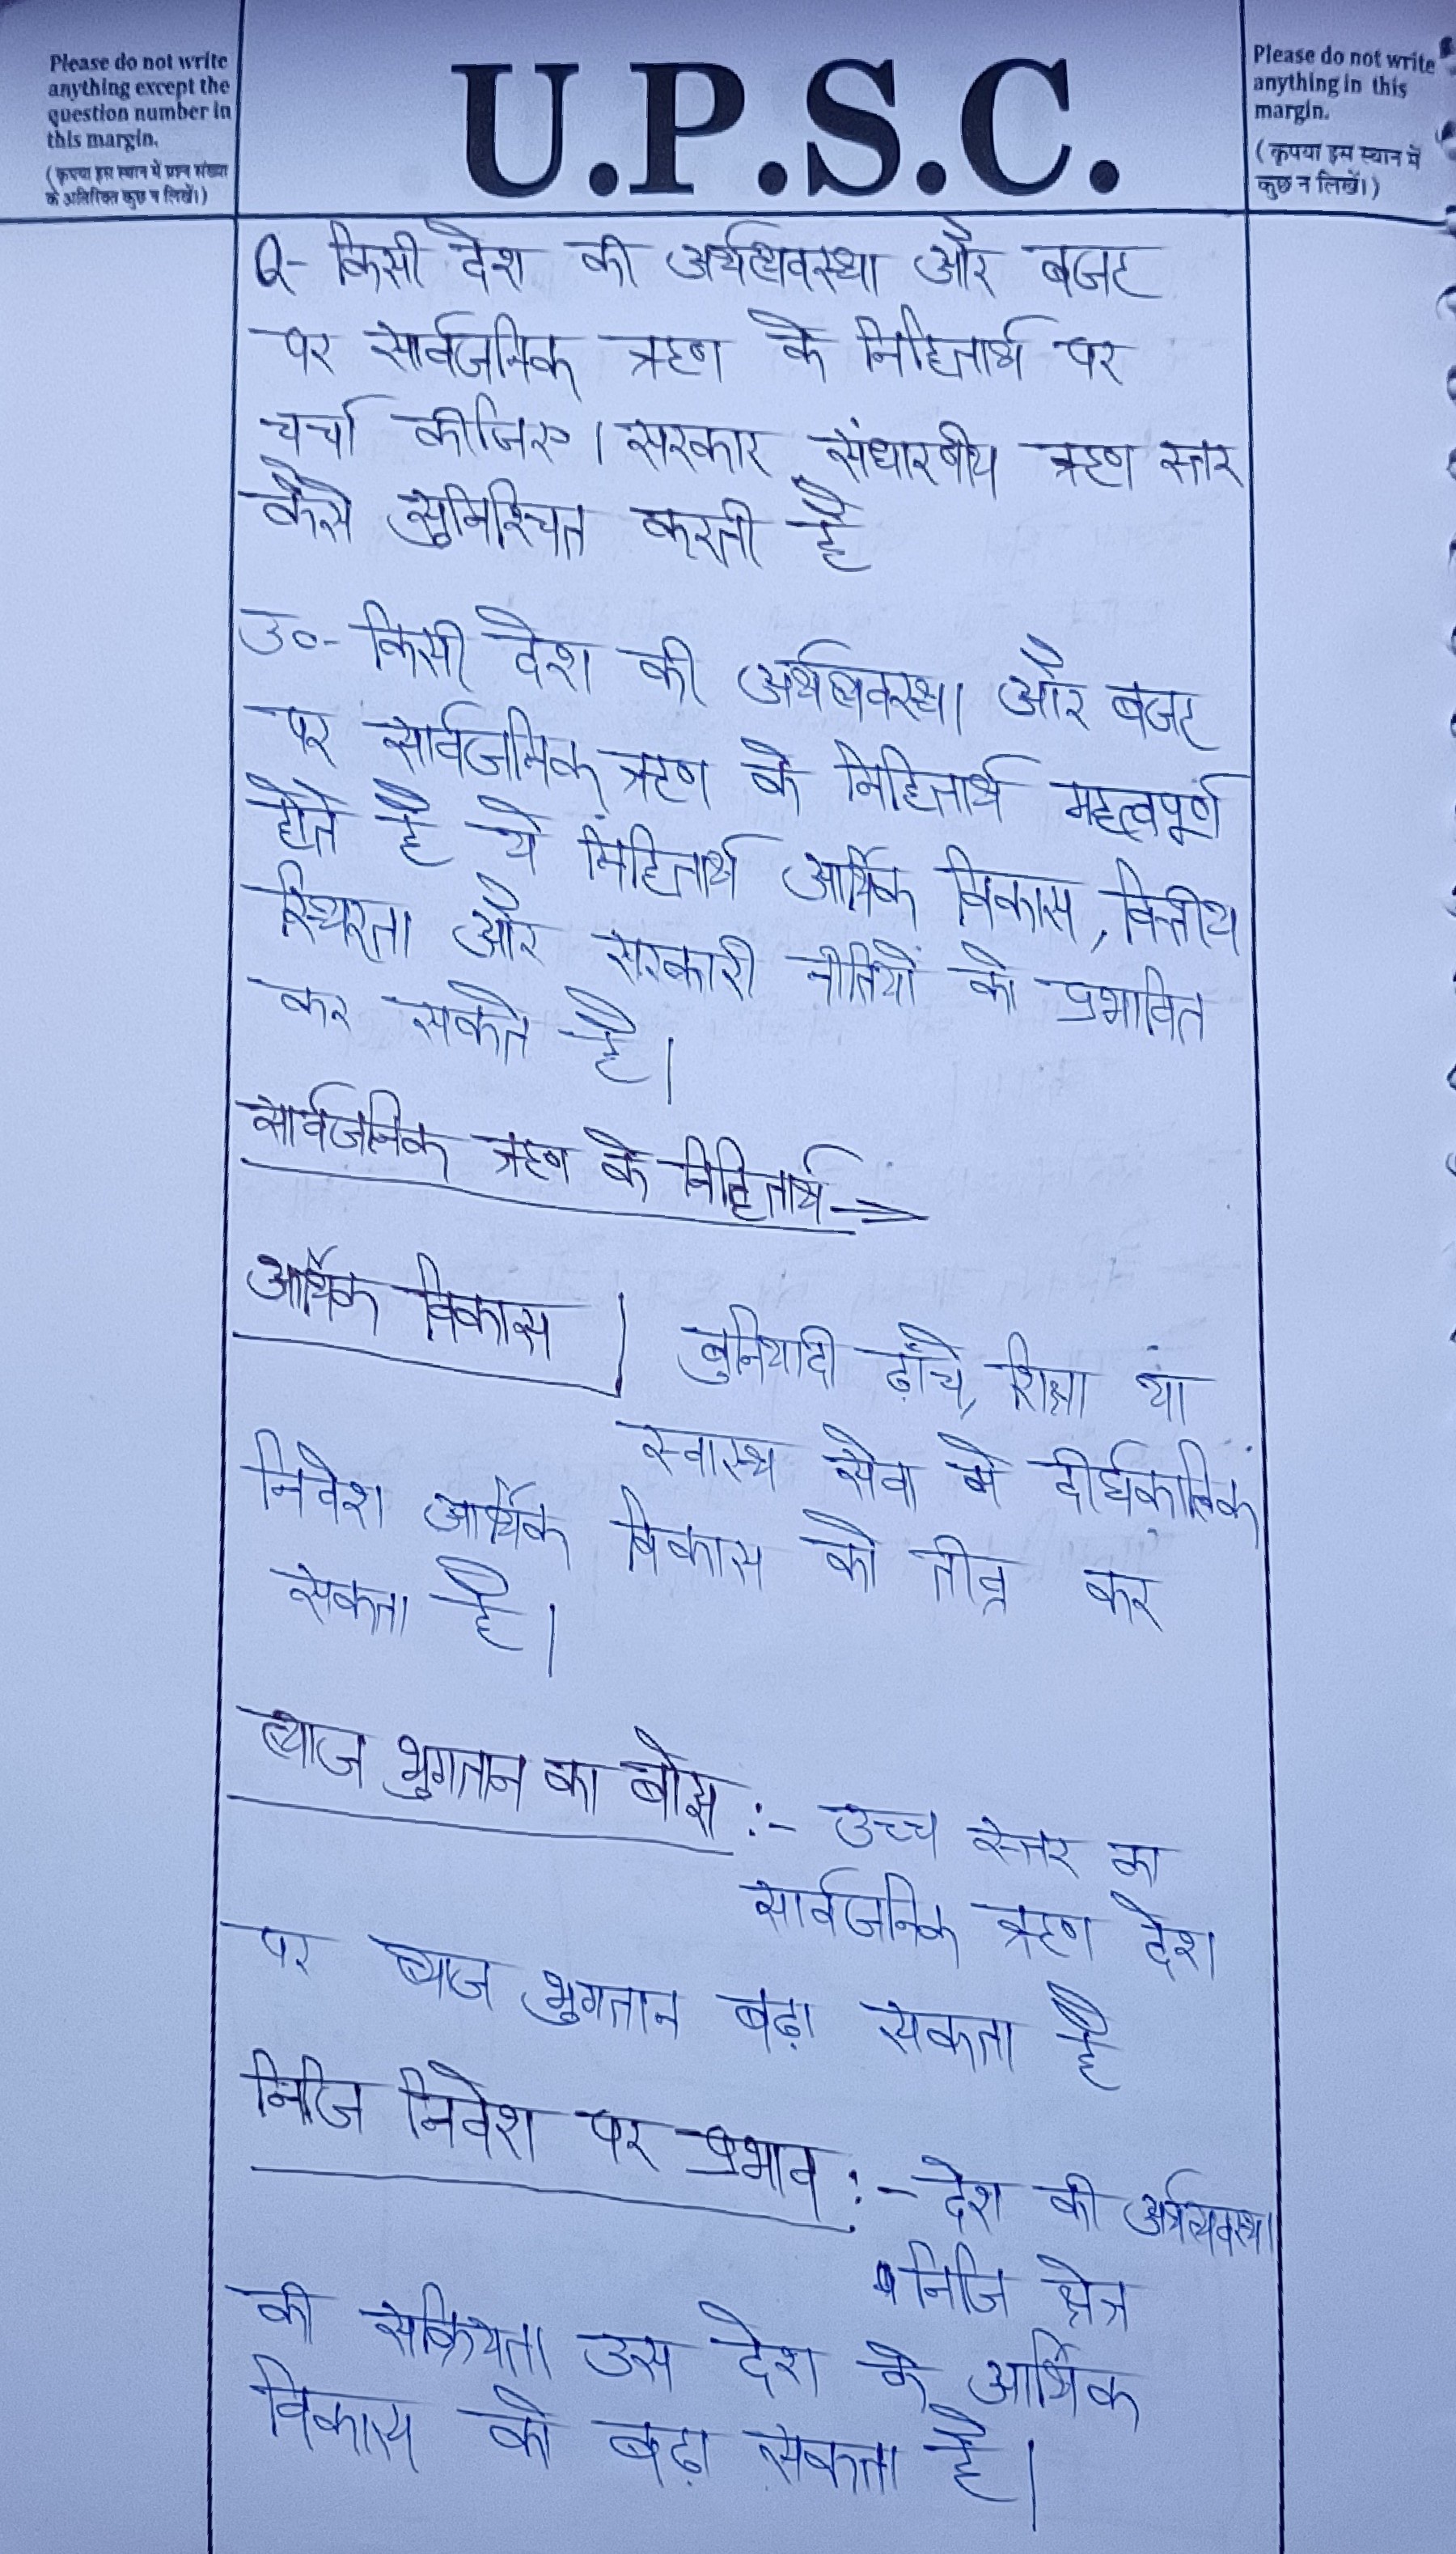 Please do not write
anything except the
question number in
this margin.
(कृपया इस स्थान में प्रश्न संख्या
के अतिरिक्त कुछ न लिखें।)
U.P.S.C.
Please do not write
anything in this
margin.
(कृपया इस स्थान में
कुछ न लिखें।)
Q- किसी देश की अर्थव्यवस्था और बजट
पर सार्वजनिक ऋण के निहितार्थ पर
चर्चा कीजिए। सरकार संधारणीय ऋण स्तर
कैसे सुनिश्चित करती है
उ०- किसी देश की अर्थव्यवस्था और बजट
पर सार्वजनिक ऋण के निहितार्थ महत्वपूर्ण
होते है ये निहितार्थ आर्थिक विकास, वित्तीय
स्थिरता और सरकारी नीतियों को प्रभावित
कर सकते है।
सार्वजनिक ऋण के निहितार्थ →
आर्थिक विकास | बुनियादी ढाँचे, शिक्षा या
स्वास्थ सेवा मे दीर्घकालिक
निवेश आर्थिक विकास को तीव्र कर
सकता है।
ब्याज भुगतान का बोझ :- उच्च स्तर का
सार्वजनिक ऋण देश
पर ब्याज भुगतान बढ़ा सकता है
निजि निवेश पर प्रभाव :- देश की अर्थव्यवस्था
निजि क्षेत्र
की सक्रियता उस देश के आर्थिक
विकास को बढ़ा सकता है।